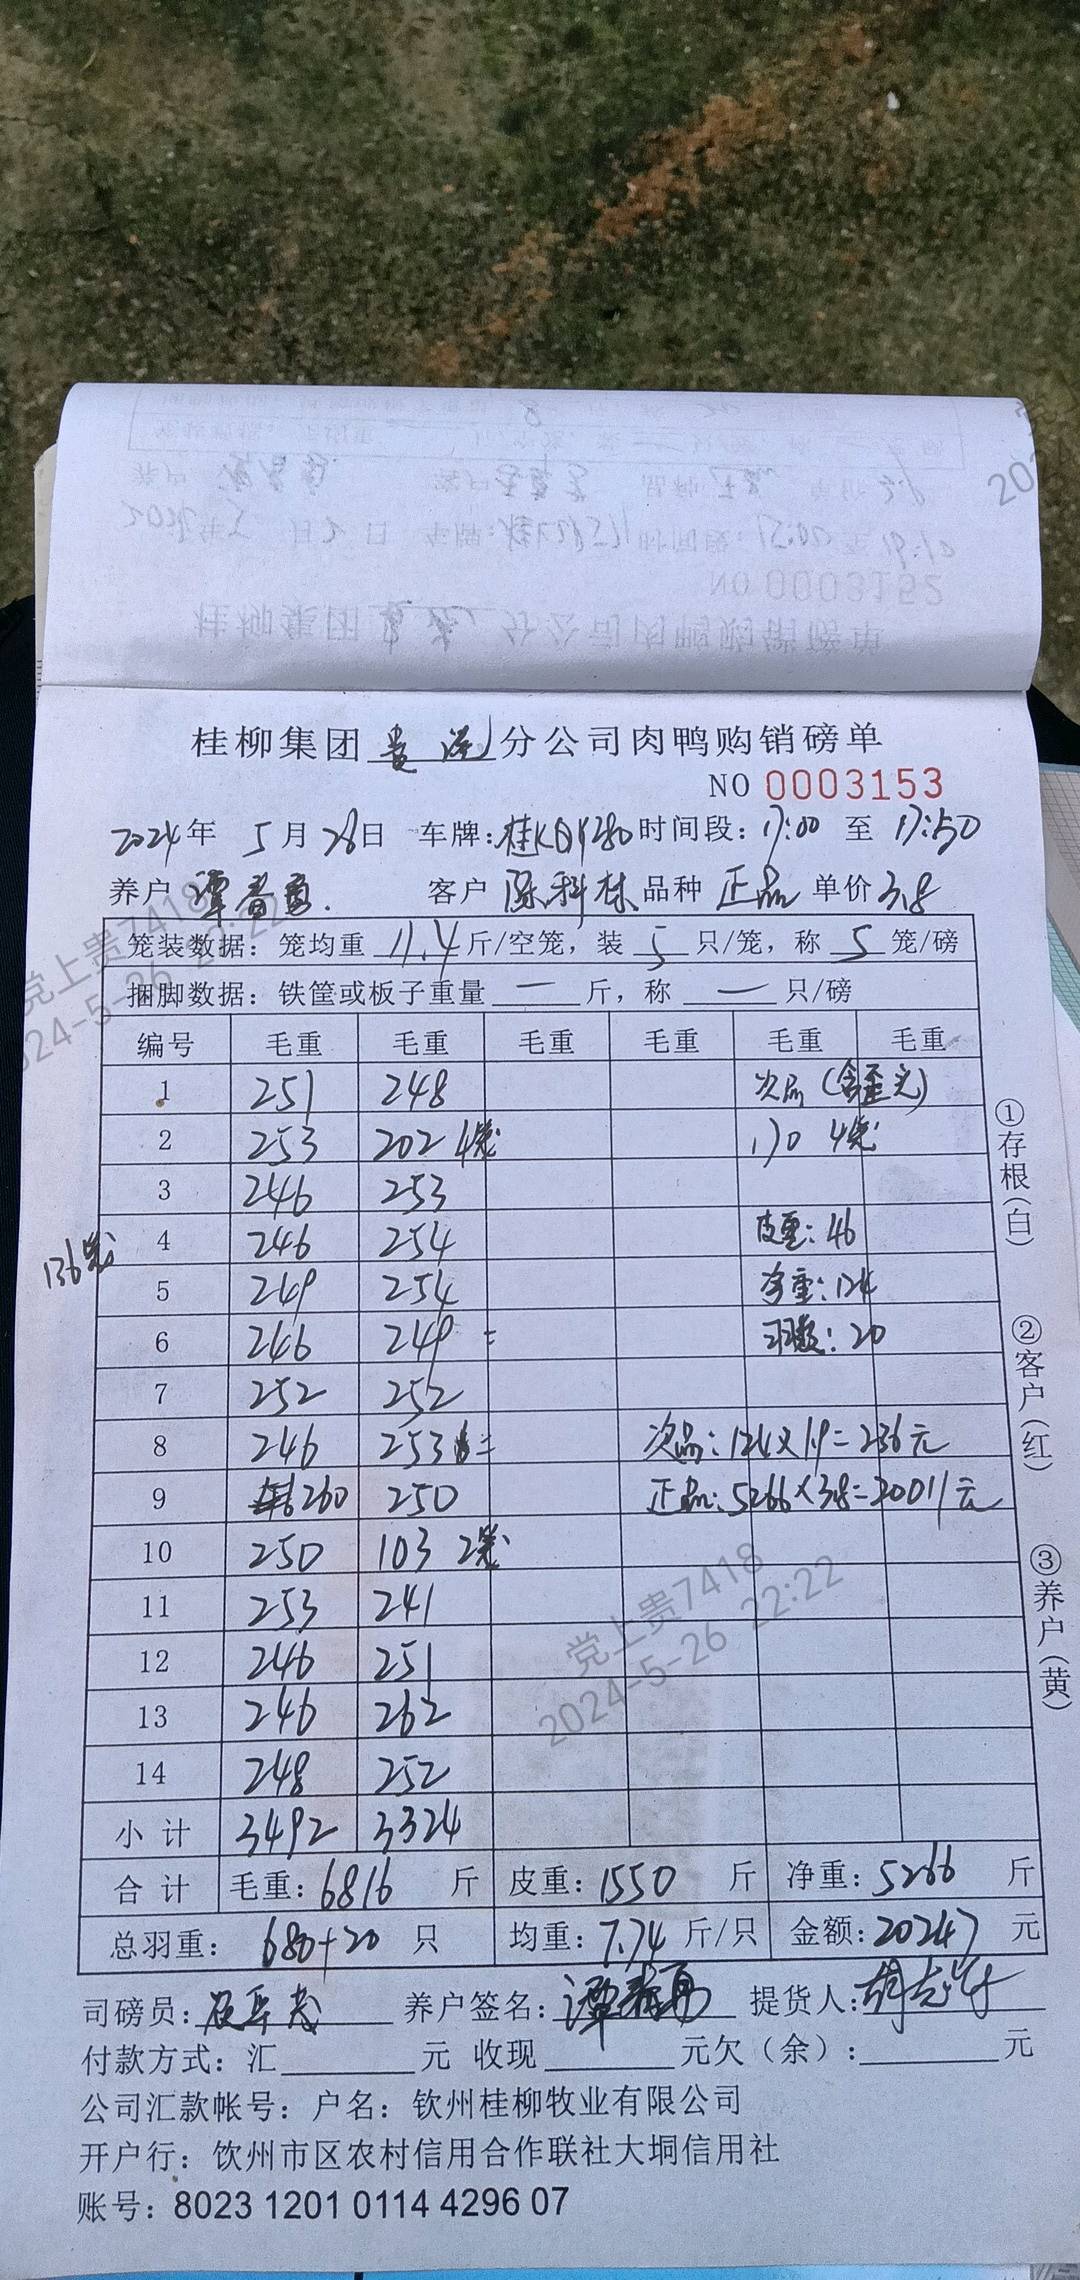 NO 0003152
桂柳集团贵港分公司肉鸭购销磅单
NO 0003153
2024年 5月28日 车牌:桂K 时间段:17:00 至 17:50
养户 谭 客户 陈科林 品种 正品 单价 3.8
笼装数据:笼均重 11.4 斤/空笼,装 5 只/笼,称 5 笼/磅
捆脚数据:铁筐或板子重量 一 斤,称 一 只/磅
编号 毛重 毛重 毛重 毛重 毛重 毛重
1 251 248 次品(含歪
2 253 202 4笼 170 4笼
3 246 253
4 246 254 皮重:46
136笼
5 249 254 净重:124
6 246 249 羽数:20
7 252 252
8 246 253 次品:124×1.9=236元
9 260 250 正品:5266×3.8=20011元
10 250 103 2笼
11 253 241
12 246 251
13 246 262
14 248 252
小计 3492 3324
合计 毛重:6816 斤 皮重:1550 斤 净重:5266 斤
总羽重:680+20 只 均重:7.74 斤/只 金额:20247 元
司磅员: 养户签名:谭 提货人:
付款方式:汇 元 收现 元欠(余): 元
公司汇款帐号:户名:钦州桂柳牧业有限公司
开户行:钦州市区农村信用合作联社大垌信用社
账号:8023 1201 0114 4296 07
①存根(白)
②客户(红)
③养户(黄)
党上贵7418
2024-5-26 22:22
党上贵7418
2024-5-26 22:22